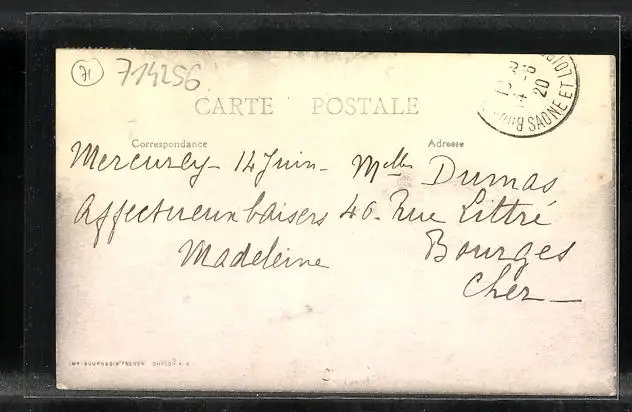 71 714256
CARTE POSTALE
SAONE ET LOIRE
20
Correspondance
Mercurey - 14 Juin -
Affectueux baisers
Madeleine
Adresse
Mlle Dumas
46 - Rue Littré
Bourges
Cher -
IMP. BOURGEOIS FRERES CHALON S S